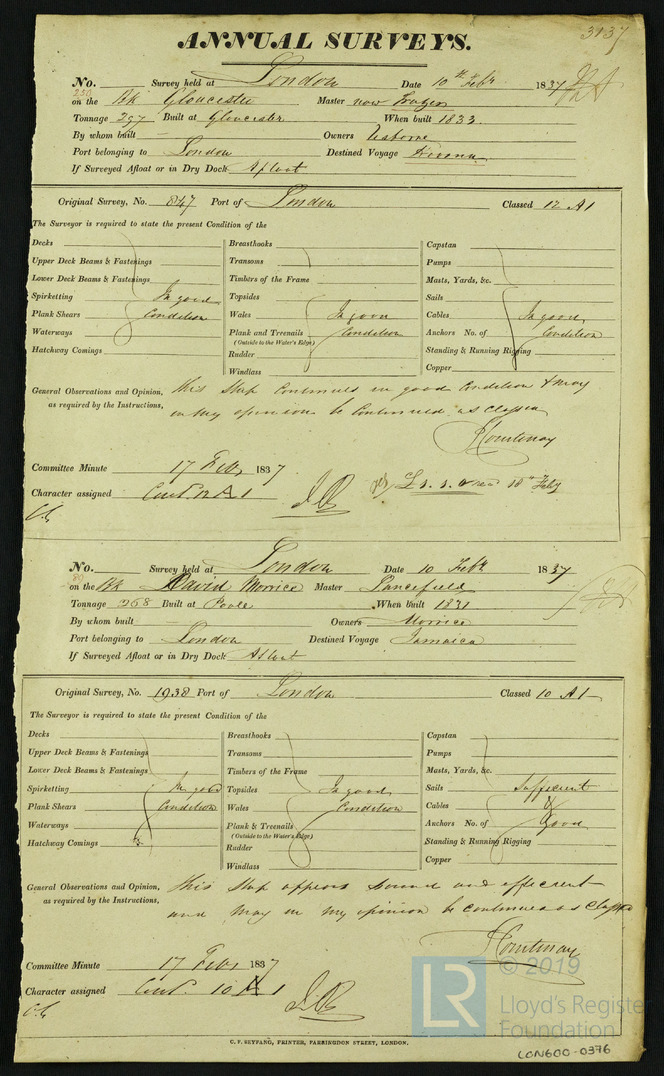 3137
ANNUAL SURVEYS.
No. Survey held at London Date 10th Feby 1837
250
on the Bk Gloucester Master now Frazer
Tonnage 297 Built at Gloucester When built 1833
By whom built Owners Osborne
Port belonging to London Destined Voyage
If Surveyed Afloat or in Dry Dock Afloat
Original Survey, No. 847 Port of London Classed 12 A1
The Surveyor is required to state the present Condition of the
Decks
Upper Deck Beams & Fastenings
Lower Deck Beams & Fastenings
Spirketting In good
Plank Shears Condition
Waterways
Hatchway Comings
Breasthooks
Transoms
Timbers of the Frame
Topsides
Wales In good
Plank and Treenails Condition
(Outside to the Water's Edge)
Rudder
Windlass
Capstan
Pumps
Masts, Yards, &c.
Sails
Cables In good
Anchors No. of Condition
Standing & Running Rigging
Copper
General Observations and Opinion, this Ship continues in good Condition & may
as required by the Instructions, in my opinion be Continued as Classed
Courtenay
Committee Minute 17 Feby 1837
Character assigned Cont. 12 A 1
No. Survey held at London Date 10 Feby 1837
80
on the Bk David Morrice Master
Tonnage 268 Built at Poole When built 1831
By whom built Owners Morrice
Port belonging to London Destined Voyage Jamaica
If Surveyed Afloat or in Dry Dock Afloat
Original Survey, No. 1938 Port of London Classed 10 A1
The Surveyor is required to state the present Condition of the
Decks
Upper Deck Beams & Fastenings
Lower Deck Beams & Fastenings
Spirketting In good
Plank Shears Condition
Waterways
Hatchway Comings
Breasthooks
Transoms
Timbers of the Frame
Topsides In good
Wales Condition
Plank & Treenails
(Outside to the Water's Edge)
Rudder
Windlass
Capstan
Pumps
Masts, Yards, &c.
Sails Sufficient
Cables &
Anchors No. of Good
Standing & Running Rigging
Copper
General Observations and Opinion, this Ship appears sound and efficient
as required by the Instructions, and may in my opinion be continued as Classed
Courtenay
Committee Minute 17 Feby 1837
Character assigned Cont. 10 A 1
C. F. SEYFANG, PRINTER, FARRINGDON STREET, LONDON.
LR © 2019
Lloyd's Register
Foundation
LON600-0376